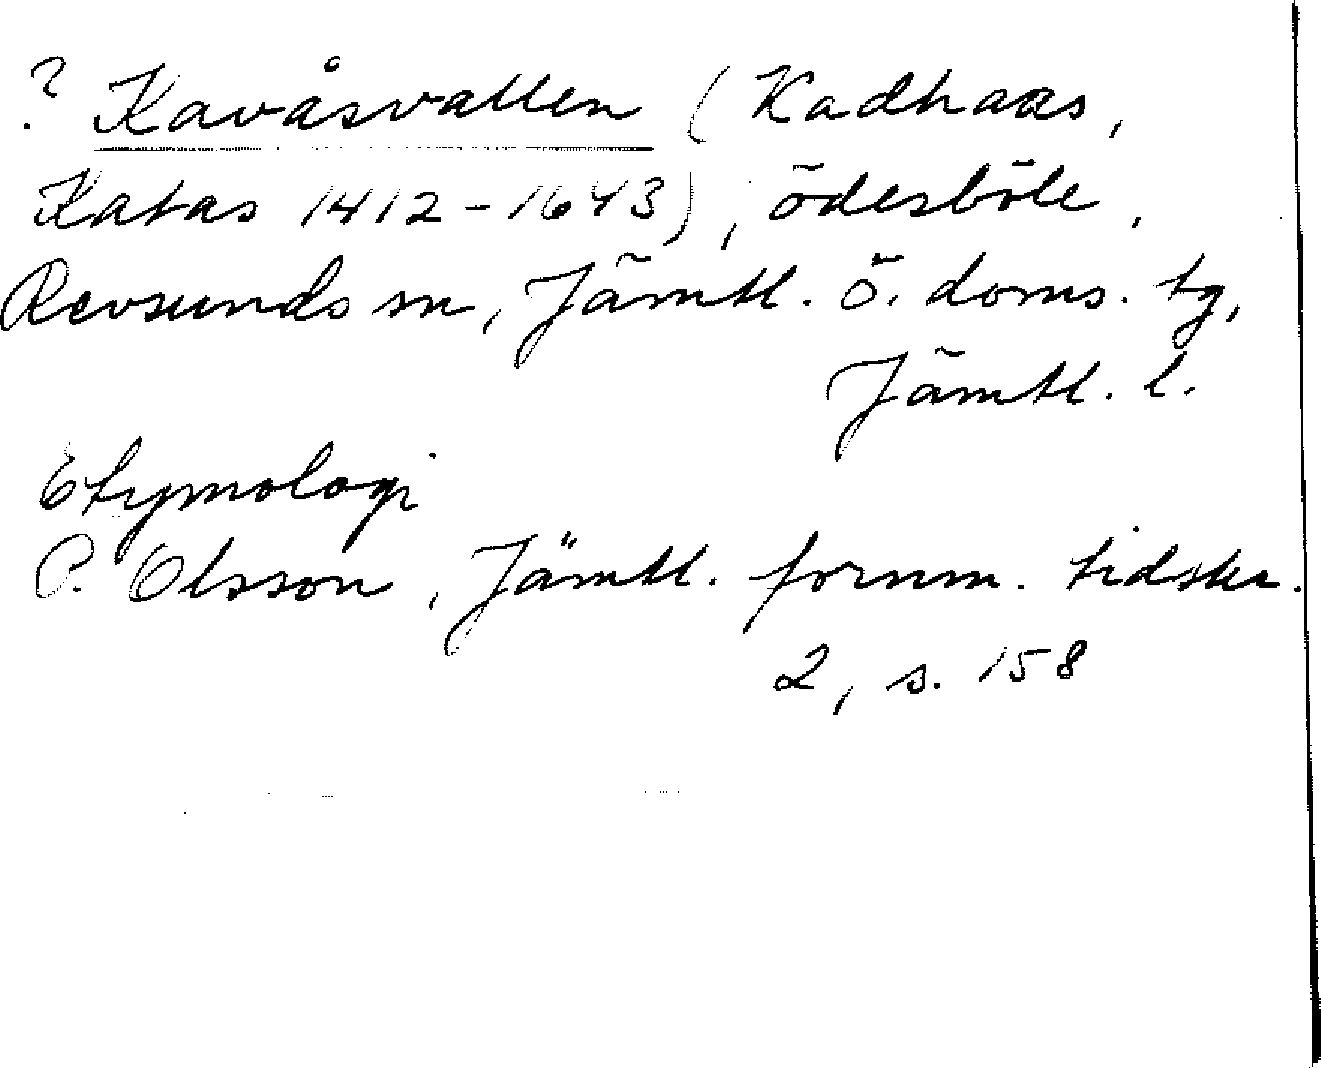 ? Kavåsvallen (Kadhaas,
Katas 1412-1643), ödesböle,
Revsunds sn, Jämtl. ö. doms. tg,
Jämtl. l.
Etymologi
P. Olsson, Jämtl. fornm. tidskr.
2, s. 158